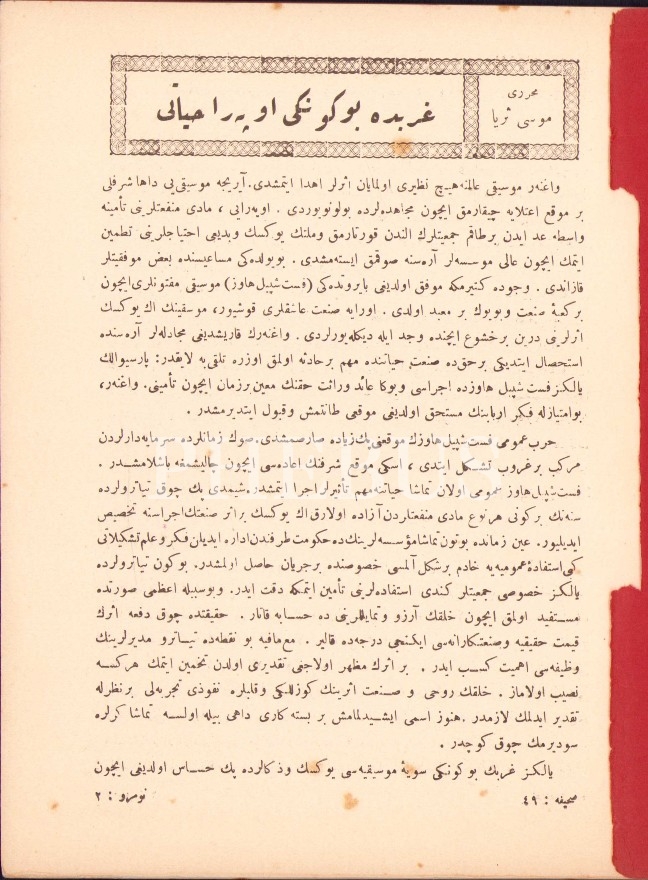 محرری
موسی ثریا
غربده بوكونكی اوپه‌را حیاتی
واغنه‌ر موسیقی عالمنه هیچ نظیری اولمایان اثرلر اهدا ایتمشدی. آیریجه موسیقی‌یی داها شرفلی
بر موقع اعتلایه چیقارمق ایچون مجاهده‌لرده بولونویوردی . اوپه‌رایی ، مادی منفعتلرینی تأمینه
واسطه عد ایدن برطاقم جمعیتلرك الندن قورتارمق وملتك یوكسك وبدیعی احتیاجلرینی تطمین
ایتمك ایچون عالی موسسه‌لر آره‌سنه صوقمق ایسته‌مشدی . بویولده‌كی مساعیسنده بعض موفقیتلر
قازاندی . وجوده كتیرمكه موفق اولدیغی بایروتده‌كی (فست شپیل هاوز) موسیقی مفتونلری ایچون
بركعبهٔ صنعت وبویوك بر معبد اولدی . اورایه صنعت عاشقلری قوشیور، موسقینك اك یوكسك
اثرلرینی درین برخشوع ایچنده وجد ایله دیكله‌یورلردی . واغنه‌رك قاریشدیغی مجادله‌لر آره‌سنده
استحصال ایتدیكی برحق‌ده صنعت حیاتنده مهم برحادثه اولمق اوزره تلقی‌یه لایقدر: پارسیوالك
یالكز فست شپیل هاوزده اجراسی وبوكا عائد وراثت حقنك معین برزمان ایچون تأمینی. واغنه‌ر،
بوامتیازله فكر اربابنك مستحق اولدیغی موقعی طانتمش وقبول ایتدیرمشدر .
حرب عمومی فست شپیل هاوزك موقعنی پك زیاده صارصمشدی. صوك زمانلرده سرمایه‌دارلردن
مركب برغروب تشكل ایتدی ، اسكی موقع شرفنك اعاده‌سی ایچون چالیشمغه باشلامشدر .
فست شپیل هاوز عمومی اولان تماشا حیاتنه مهم تأثیرلر اجرا ایتمشدر. شیمدی پك چوق تیاترولرده
سنه‌نك بركونی هرنوع مادی منفعتلردن آزاده اولارق اك یوكسك براثر صنعتك اجراسنه تخصیص
ایدیلیور. عین زمانده بوتون تماشا مؤسسه‌لرینك‌ده حكومت طرفندن اداره ایدیلن فكر وعلم تشكیلاتی
كبی استفادهٔ عمومیه‌یه خادم برشكل آلمسی خصوصنده برجریان حاصل اولمشدر. بوكون تیاترولرده
یالكز خصوصی جمعیتلر كندی استفاده‌لرینی تأمین ایتمكه دقت ایدر. وبوسیله اعظمی صورتده
مستفید اولمق ایچون خلقك آرزو وتمایللرینی ده حسابه قاتار . حقیقتده چوق دفعه اثرك
قیمت حقیقیه وصنعتكارانه‌سی ایكنجی درجه‌ده قالیر . مع‌مافیه بو نقطه‌ده تیاترو مدیرلرینك
وظیفه‌سی اهمیت كسب ایدر . بر اثرك مظهر اولاجغی تقدیری اولدن تخمین ایتمك هركسه
نصیب اولاماز . خلقك روحی و صنعت اثرینك كوزللكی وقلبلره نفوذی تجربه‌لی برنظرله
تقدیر ایدلمك لازمدر. هنوز اسمی ایشیدلمامش بر بسته كاری داهی بیله اولسه تماشا كرلره
سودیرمك چوق كوجدر .
یالكز غربك بوكونكی سویهٔ موسیقیه‌سی یوكسك وذكالرده پك حساس اولدیغی ایچون
صحیفه : ٤٩
نومرو : ٢